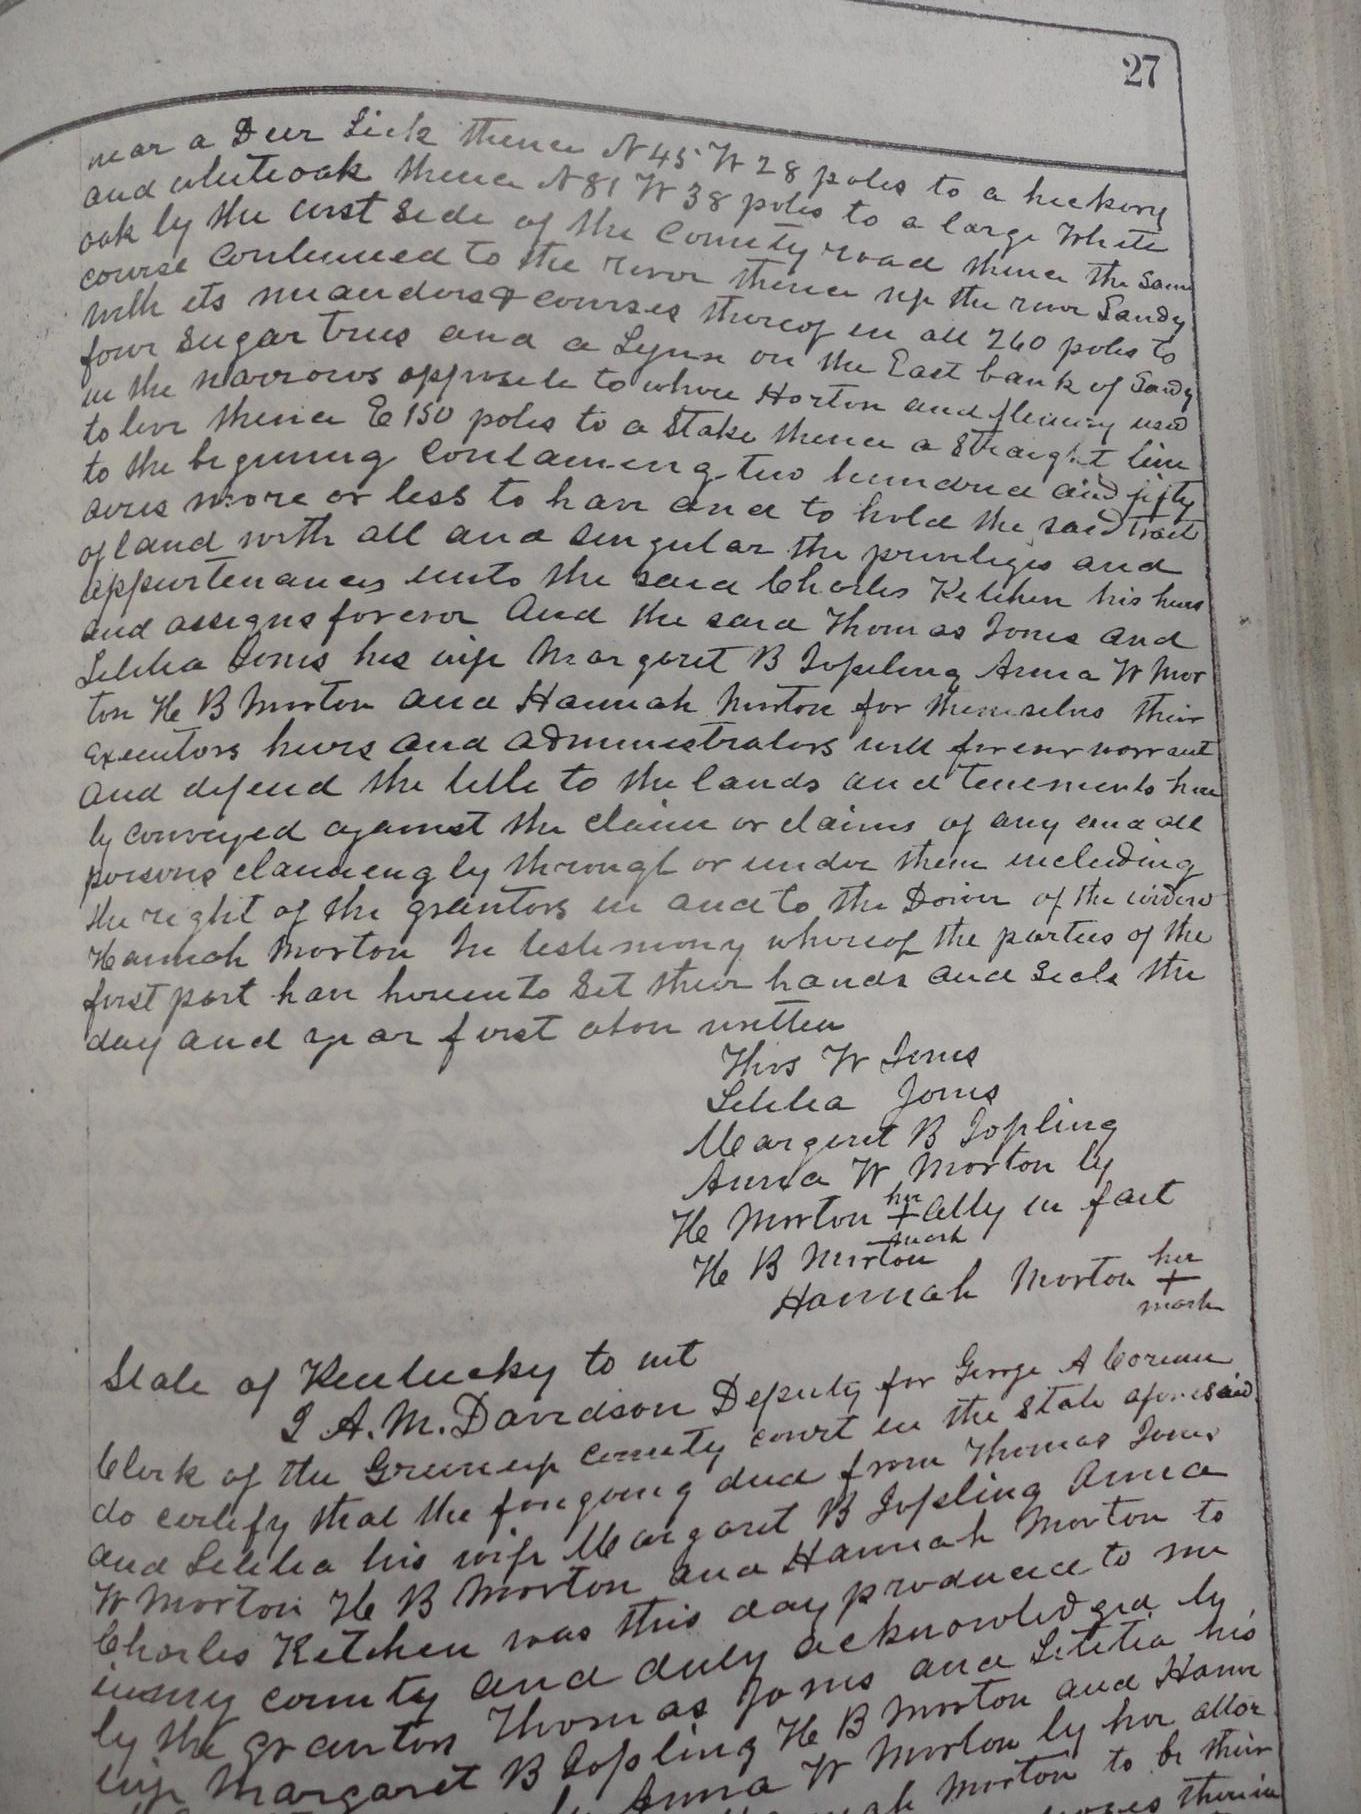 27
near a Deer Lick thence N 45 W 28 poles to a hickory
and whiteoak thence N 81 W 38 poles to a large White
oak by the west side of the County road thence the same
course continued to the river thence up the river Sandy
with its meanders & courses thereof in all 260 poles to
four sugar trees and a Lynn on the East bank of Sandy
in the narrows opposite to where Horton and used
to live thence E 150 poles to a Stake thence a straight line
to the begining containing two hundred and fifty
acres more or less to have and to hold the said tract
of land with all and singular the privileges and
appurtenances unto the said Charles Ketchen his heirs
and assigns forever And the said Thomas Jones and
Letitia Jones his wife Margaret B Jopling Anna W Mor
ton H B Morton and Hannah Morton for themselves their
executors heirs and administrators will forever warrant
and defend the title to the lands and tenements here
by conveyed against the claim or claims of any and all
persons claiming by through or under them including
the right of the grantors in and to the Dower of the widow
Hannah Morton In testimony whereof the parties of the
first part have hereunto set their hands and seals the
day and year first above written
Thos W Jones
Letitia Jones
Margaret B Jopling
Anna W Morton by
H Morton her + atty in fact
mark
H B Morton
Hannah Morton her
+
mark
State of Kentucky to wit
I A.M. Davidson Deputy for George A
Clerk of the Greenup County court in the State aforesaid
do certify that the foregoing deed from Thomas Jones
and Letitia his wife Margaret B Jopling Anna
W Morton H B Morton and Hannah Morton to
Charles Ketchen was this day produced to me
in my county and duly acknowledged by
by the grantors Thomas Jones and Letitia his
wife Margaret B Jopling H B Morton and Hann
Anna W Morton by her attor
Morton to be their
therein